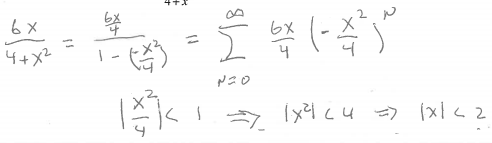 4+x
6x/(4+x²) = (6x/4)/(1-(-x²/4)) = ∑_{N=0}^{∞} 6x/4 (-x²/4)^N
|x²/4| < 1 ⇒ |x²| < 4 ⇒ |x| < 2